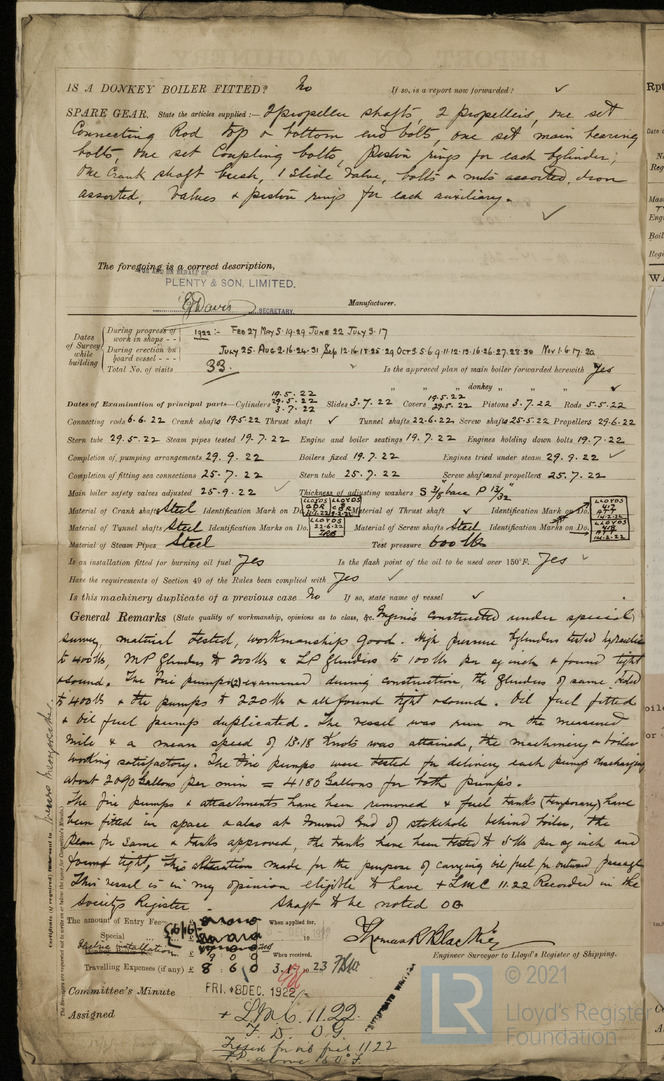 IS A DONKEY BOILER FITTED? No If so, is a report now forwarded? ✓
SPARE GEAR. State the articles supplied:— 2 propeller shafts, 2 propellers, one set
Connecting Rod top & bottom end bolts, one set main bearing
bolts, one set Coupling bolts, piston rings for each Cylinder;
One Crank shaft bush, 1 Slide Valve, bolts & nuts assorted, iron
assorted, Valves & piston rings for each auxiliary. ✓
The foregoing is a correct description,
FOR AND ON BEHALF OF
PLENTY & SON, LIMITED.
Davis SECRETARY. Manufacturer.
Dates of Survey while building
During progress of work in shops - - 1922:- FEB 27 MAY 5.19.29 JUNE 22 JULY 3.17
During erection on board vessel - - - JULY 25. AUG 2.16.24.31 Sep 12.16.18.25.29 OCT 3.5.6.9.11.12.13.16.26.27.28.30 NOV 1.6.17.20
Total No. of visits 33. Is the approved plan of main boiler forwarded herewith Yes
" " " donkey " " " ✓
Dates of Examination of principal parts—Cylinders 19.5.22 29.5.22 3.7.22 Slides 3.7.22 Covers 19.5.22 29.5.22 Pistons 3.7.22 Rods 5.5.22
Connecting rods 6.6.22 Crank shafts 19.5.22 Thrust shaft ✓ Tunnel shafts 22.6.22 Screw shafts 25.5.22 Propellers 29.6.22
Stern tube 29.5.22 Steam pipes tested 19.7.22 Engine and boiler seatings 19.7.22 Engines holding down bolts 19.7.22
Completion of pumping arrangements 29.9.22 Boilers fixed 19.7.22 Engines tried under steam 29.9.22 ✓
Completion of fitting sea connections 25.7.22 Stern tube 25.7.22 Screw shaft and propellers 25.7.22
Main boiler safety valves adjusted 25.9.22 ✓ Thickness of adjusting washers
Material of Crank shafts Steel Identification Mark on Do. Material of Thrust shaft ✓ Identification Mark on Do.
LLOYDS
LLOYDS
LLOYDS
Material of Tunnel shafts Steel Identification Marks on Do. LLOYDS 22-6-22 Material of Screw shafts Steel Identification Marks on Do. LLOYDS
Material of Steam Pipes Steel Test pressure 600 lbs
Is an installation fitted for burning oil fuel Yes Is the flash point of the oil to be used over 150°F. Yes ✓
Have the requirements of Section 49 of the Rules been complied with Yes ✓
Is this machinery duplicate of a previous case No If so, state name of vessel ✓
General Remarks (State quality of workmanship, opinions as to class, &c. Engines constructed under special
survey, material tested, workmanship good. High pressure Cylinders tested hydraulic
to 400 lbs, M P Cylinders to 200 lbs & L P Cylinders to 100 lbs per sq inch & found tight
& sound. The Fire pumps (2) examined during construction, the Cylinders of same tested
to 400 lbs & the pumps to 220 lbs & all found tight & sound. Oil fuel fitted
& Oil fuel pump duplicated. The vessel was run on the measured
mile & a mean speed of 13.18 Knots was attained, the machinery & boiler
working satisfactory. The fire pumps were tested for delivery each pump discharging
about 2090 Gallons per min = 4180 Gallons for both pumps.
The Fire pumps & attachments have been removed & fuel tanks (temporary) have
been fitted in space & also at Forward End of stokehole behind boiler, the
plan for same & tanks approved, the tanks have been tested to 5 lbs per sq inch and
found tight, this alteration made for the purpose of carrying oil fuel for outward passage
This vessel is in my opinion eligible to have + LMC 11.22 Recorded in the
Society's Register Shaft to be noted OG
The amount of Entry Fee - £ When applied for,
Special £
£ 9 0 0 When received,
Travelling Expenses (if any) £ 8 6 0
Engineer Surveyor to Lloyd's Register of Shipping.
Committee's Minute FRI. 8 DEC. 1922
Assigned + LMC 11.22
F.D. O.G.
Fitted for oil fuel 11.22
F.P. above 150° F.
© 2021
LR
Lloyd's Register
Foundation